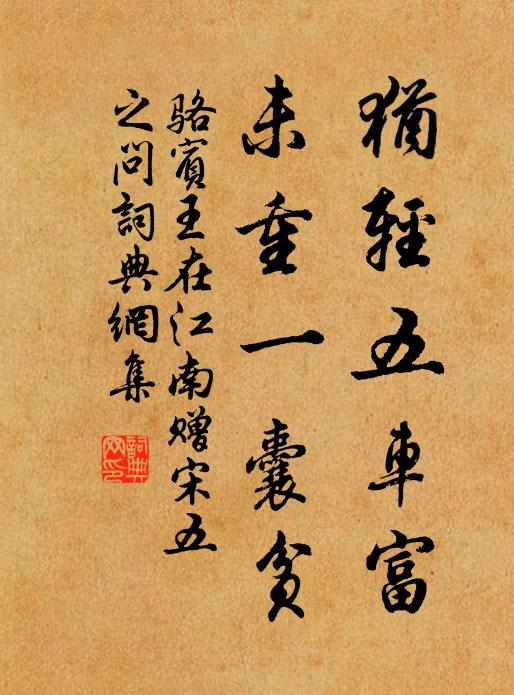 猶輕五車富
未重一囊貧
駱賓王在江南贈宋五
之問詞典網集
詞典
网印